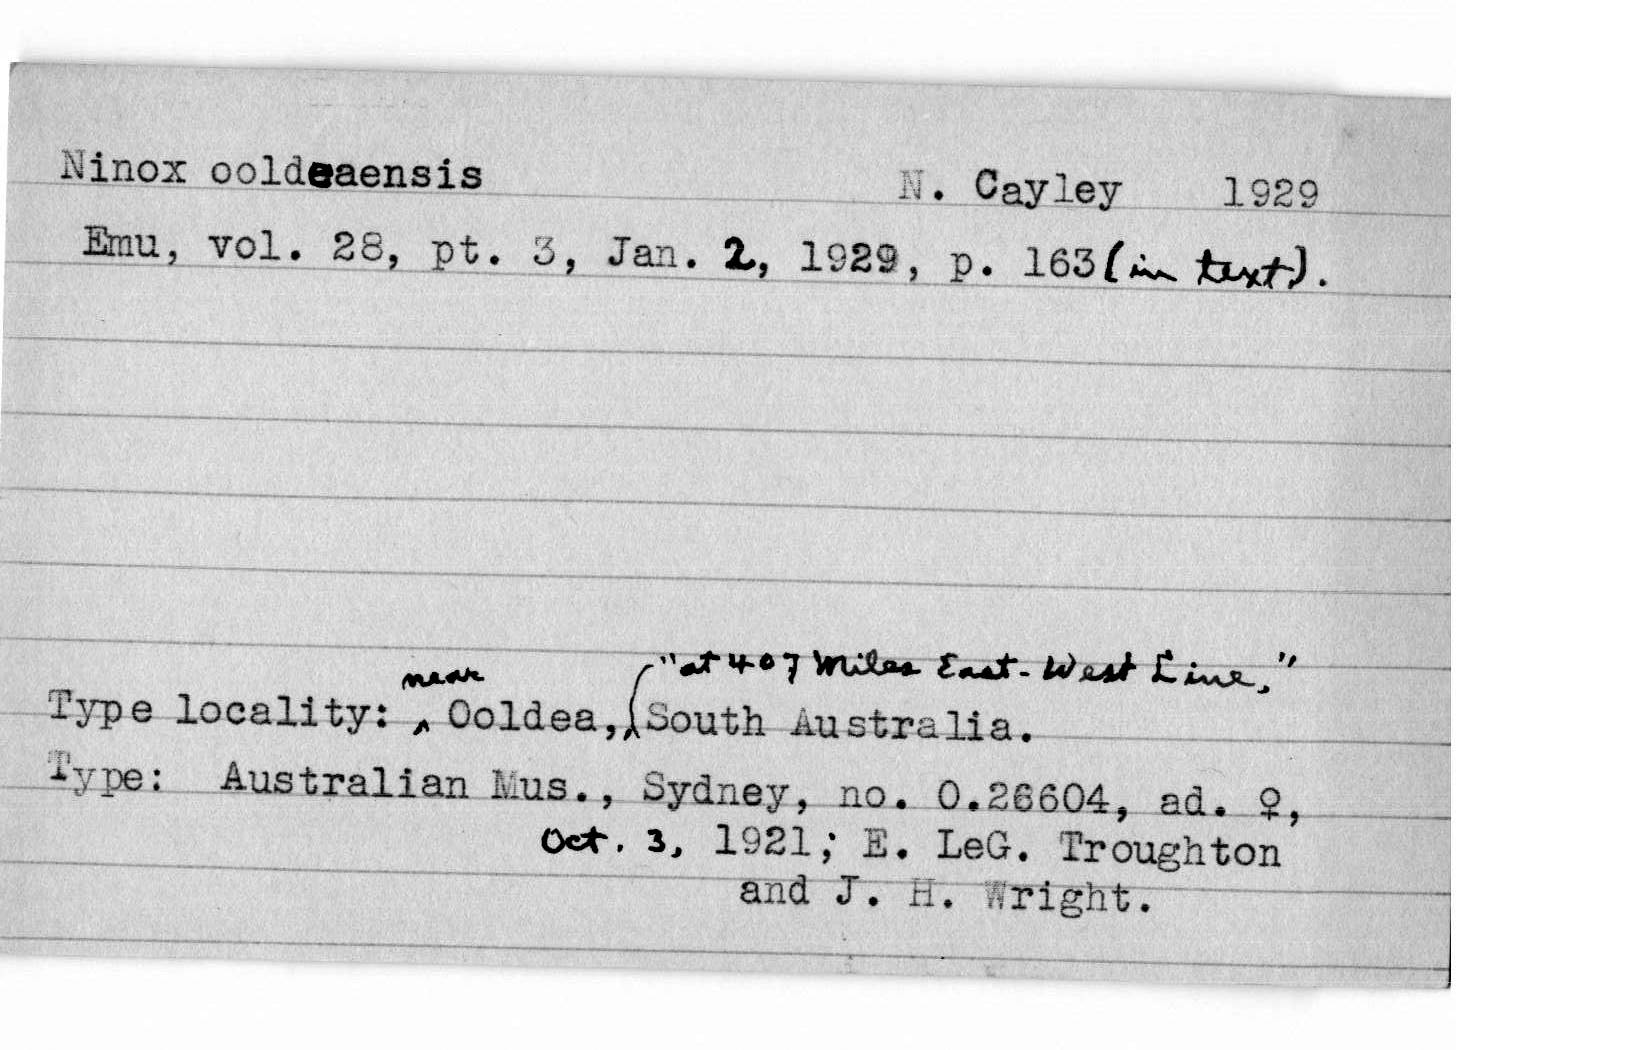 Ninox ooldeaensis N. Cayley 1929
Emu, vol. 28, pt. 3, Jan. 2, 1929, p. 163 (in text).
near "at 407 Miles East-West Line,"
Type locality: ‸ Ooldea, ‸ South Australia.
Type: Australian Mus., Sydney, no. O.26604, ad. ♀,
Oct. 3, 1921; E. LeG. Troughton
and J. H. Wright.